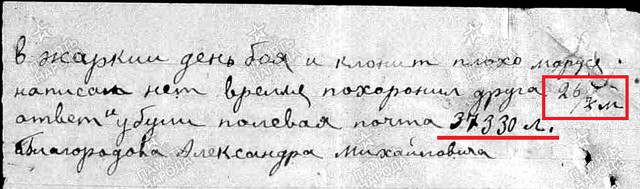 в жаркий день боя и клонит плохо маруся.
написал нет время похоронил друга 26/7 м
ответ убули полевая почта 37330 л.
Благородова Александра Михайловича